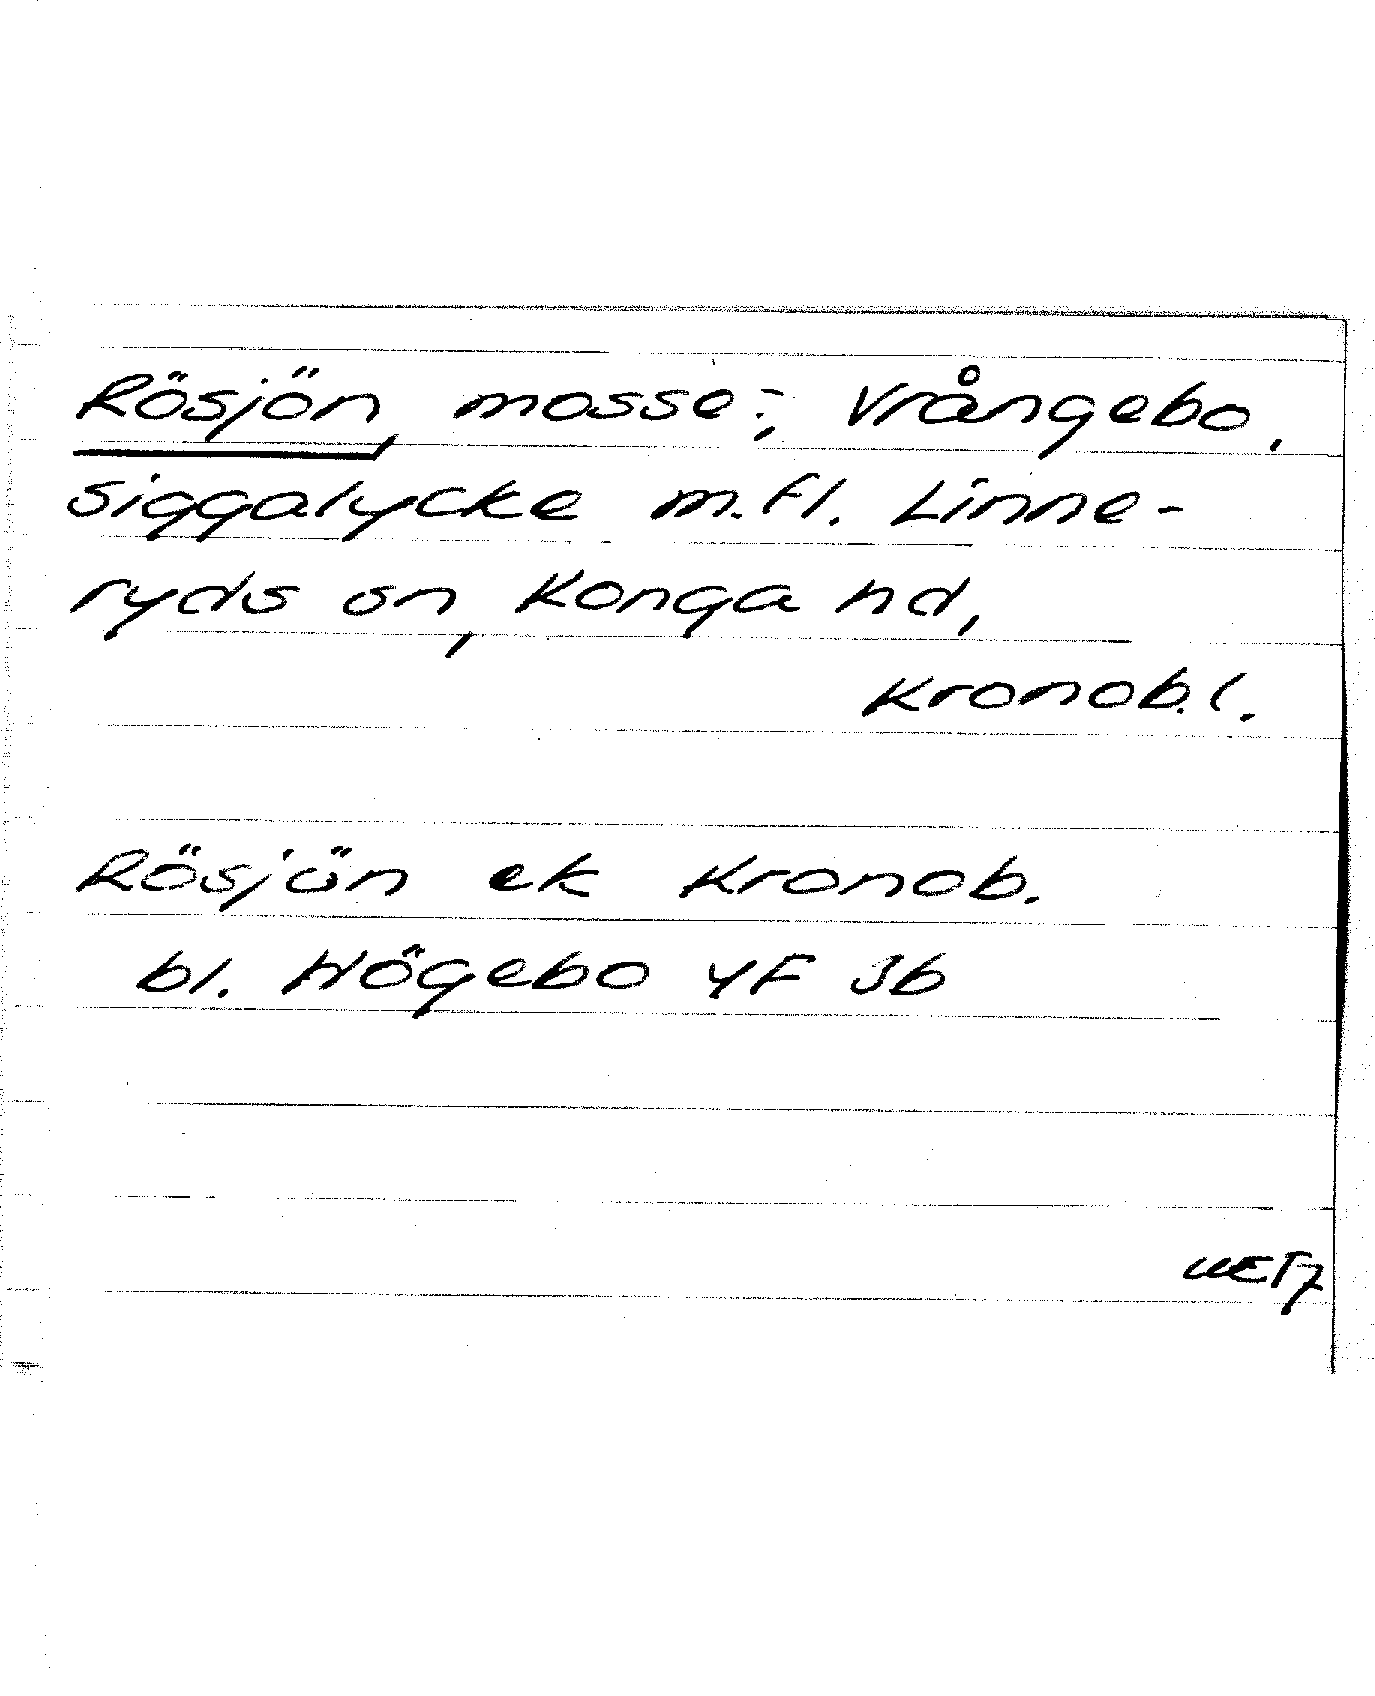 Rösjön, mosse; Vrångebo,
Siggalycke m.fl. Linne-
ryds sn, Konga hd,
Kronob.l.
Rösjön ek Kronob.
bl. Högebo 4F 3b